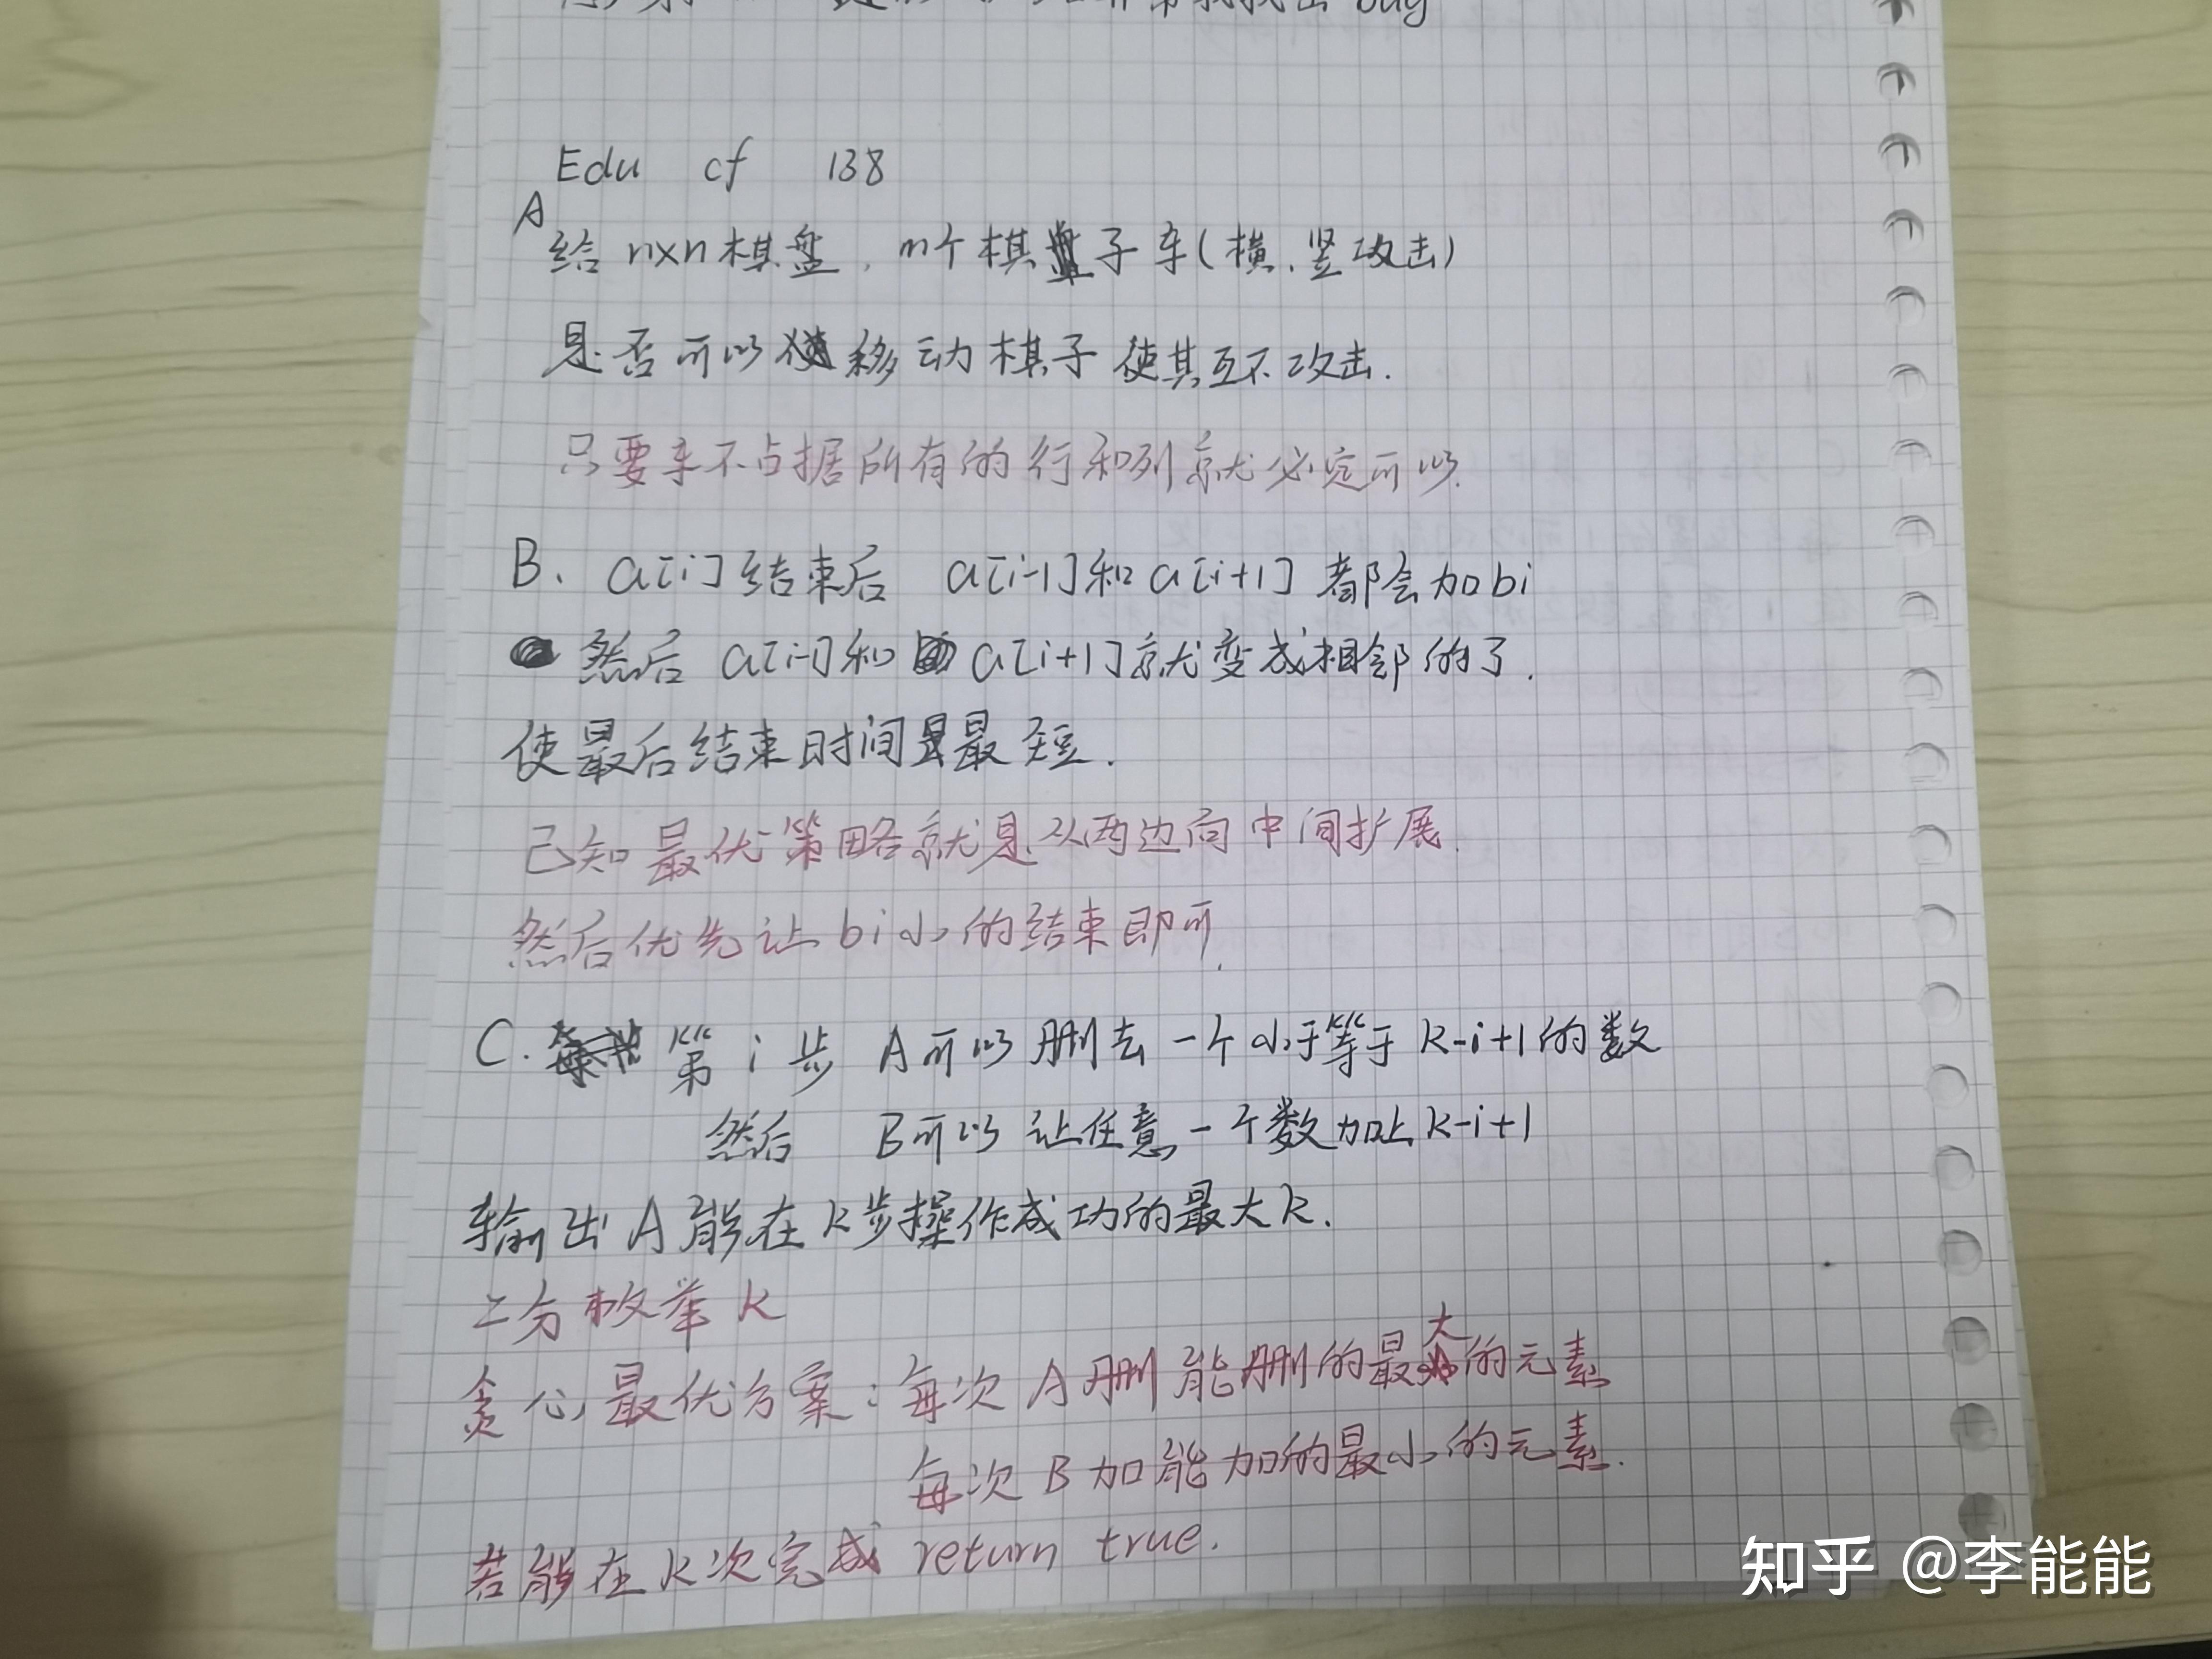 bug
Edu cf 138
A
给 n×n棋盘, m个棋子车(横、竖攻击)
是否可以移动棋子使其互不攻击.
只要车不占据所有的行和列就必定可以.
B、a[i]结束后 a[i-1]和a[i+1]都会加bi
然后 a[i-1]和a[i+1]就变成相邻的了.
使最后结束时间最短.
已知最优策略就是从两边向中间扩展.
然后优先让bi小的结束即可.
C. 第i步 A可以删去一个小于等于k-i+1的数
然后 B可以让任意一个数加上k-i+1
输出A能在k步操作成功的最大k.
二分枚举k
贪心最优方案:每次A删能删的最大的元素
每次B加能加的最小的元素.
若能在k次完成 return true.
知乎 @李能能